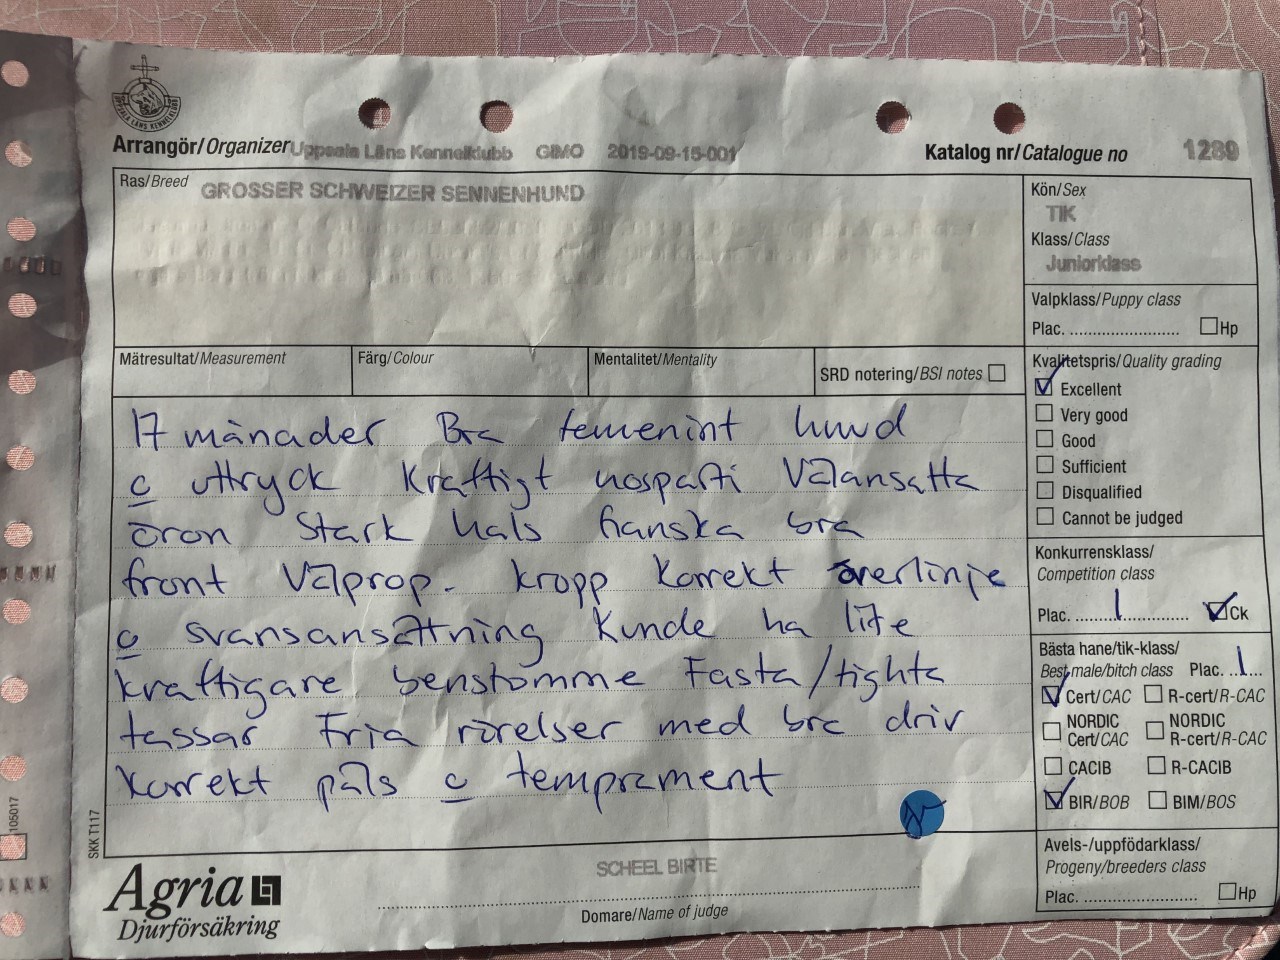 UPPSALA LÄNS KENNELKLUBB
Arrangör/Organizer Uppsala Läns Kennelklubb GIMO 2019-09-15-001
Katalog nr/Catalogue no 1289
Ras/Breed GROSSER SCHWEIZER SENNENHUND
Kön/Sex
TIK
Klass/Class
Juniorklass
Valpklass/Puppy class
Plac. ........................ Hp
Mätresultat/Measurement
Färg/Colour
Mentalitet/Mentality
SRD notering/BSI notes
Kvalitetspris/Quality grading
Excellent
Very good
Good
Sufficient
Disqualified
Cannot be judged
17 månader Bra femenint huvud
o uttryck Kraftigt nosparti Välansatta
öron Stark hals ganska bra
front Välprop. kropp korrekt överlinje
o svansansättning Kunde ha lite
kraftigare benstomme Fasta/tighta
tassar Fria rörelser med bra driv
Korrekt päls o temprament
Konkurrensklass/
Competition class
Plac. ....1.... Ck
Bästa hane/tik-klass/
Best male/bitch class Plac. ..1...
Cert/CAC R-cert/R-CAC
NORDIC Cert/CAC NORDIC R-cert/R-CAC
CACIB R-CACIB
BIR/BOB BIM/BOS
Avels-/uppfödarklass/
Progeny/breeders class
Plac. ........................ Hp
SKK T117
105017
Agria
Djurförsäkring
SCHEEL BIRTE
Domare/Name of judge